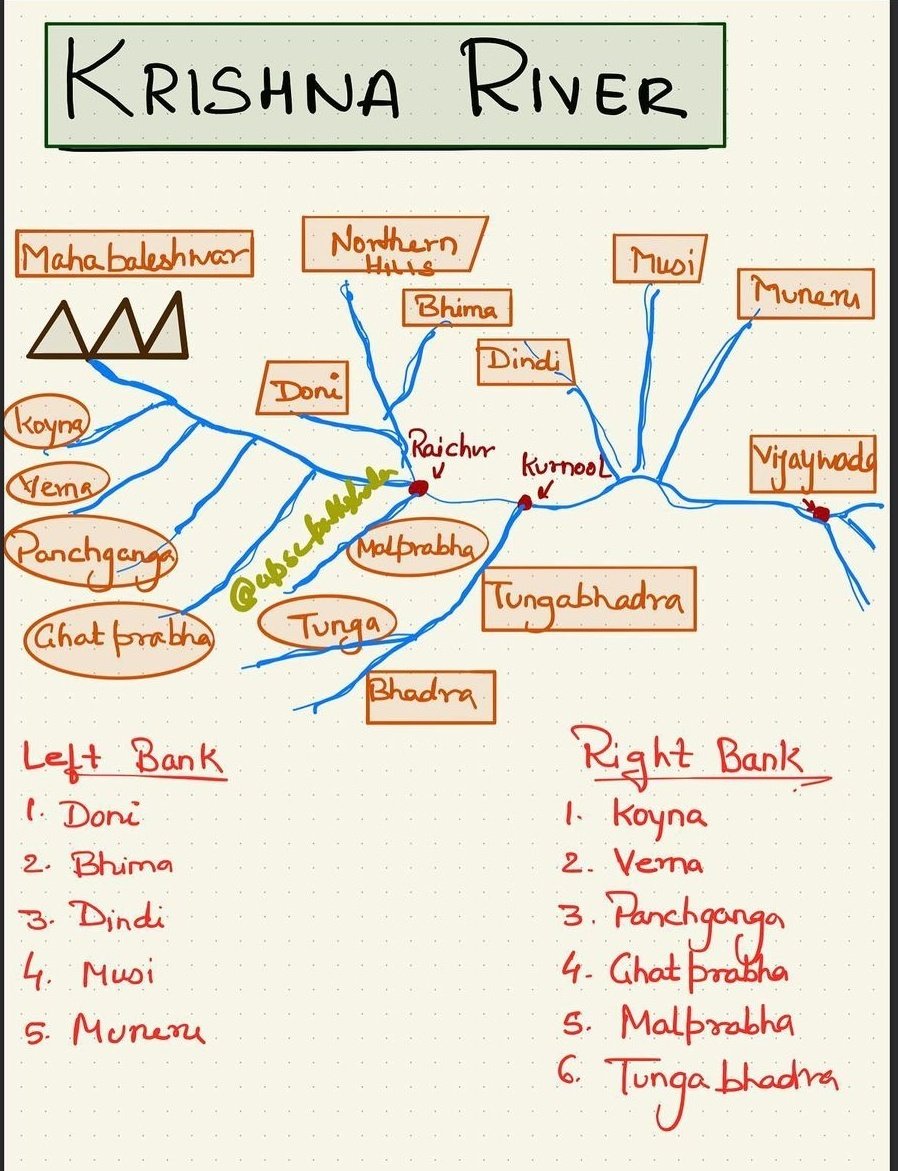 KRISHNA RIVER
Mahabaleshwar
Northern
Hills
Bhima
Musi
Muneru
Dindi
Doni
Koyna
Raichur
Kurnool
Vijaywada
Verna
Panchganga
Malprabha
Ghatprabha
Tunga
Tungabhadra
Bhadra
Left Bank
1. Doni
2. Bhima
3. Dindi
4. Musi
5. Muneru
Right Bank
1. Koyna
2. Verna
3. Panchganga
4. Ghatprabha
5. Malprabha
6. Tungabhadra